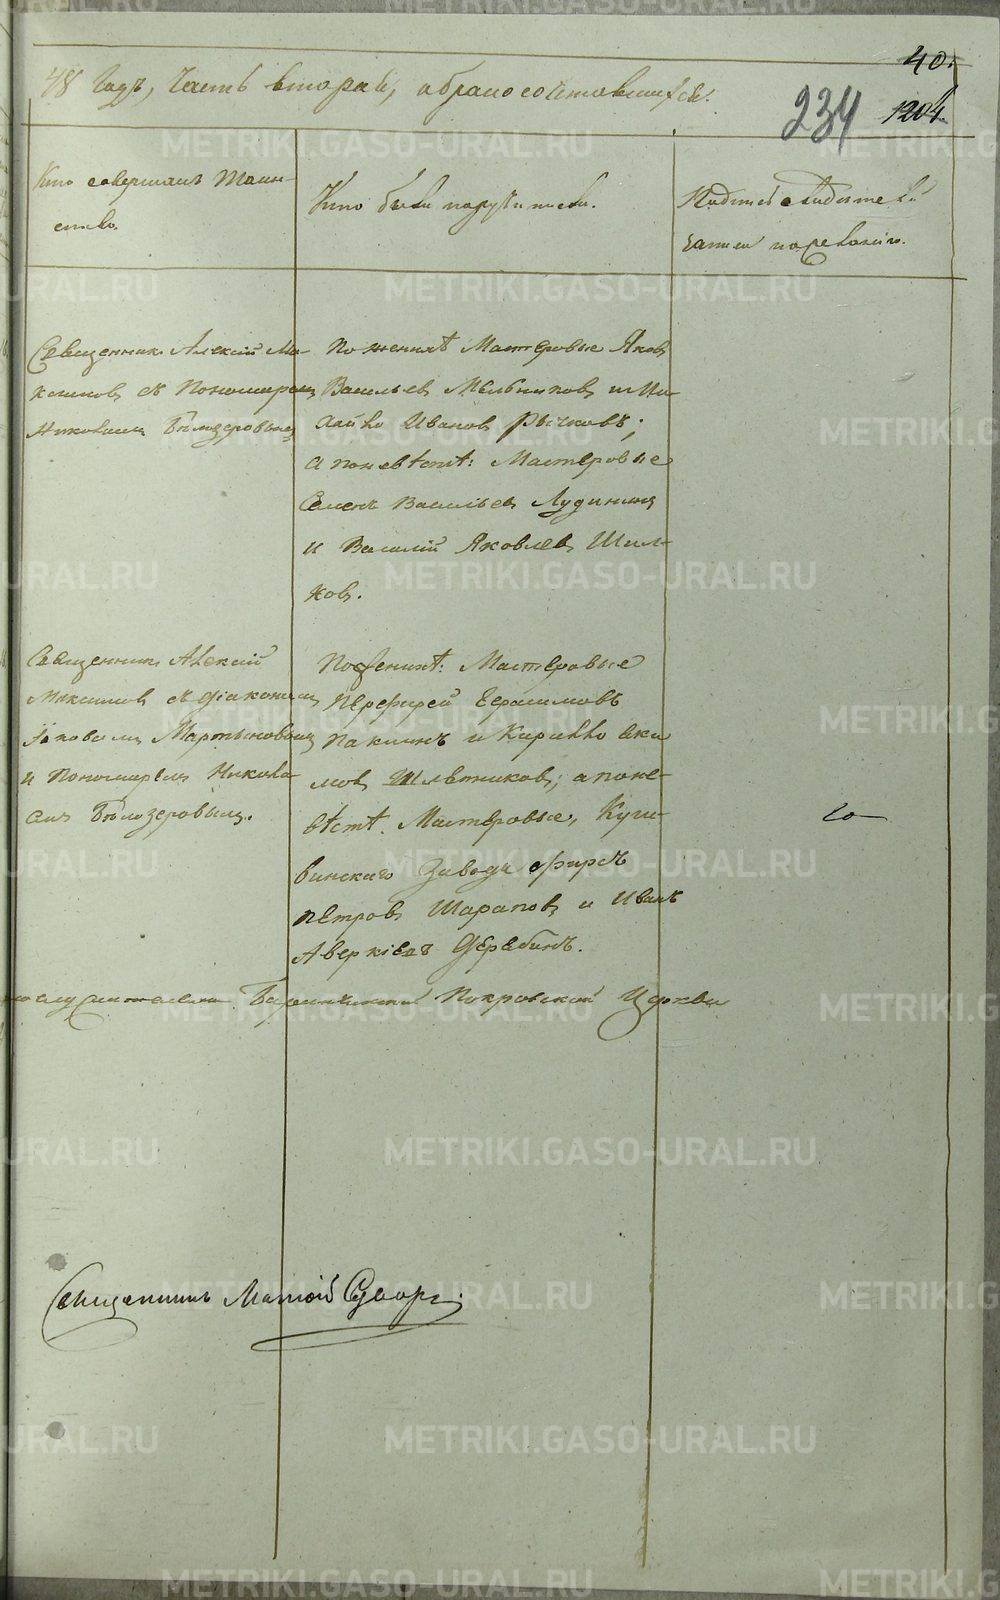 40.
48 Годъ, Часть вторая, о бракосочетавшихся.
234 1204.
Кто совершалъ Таин-
ство.
Кто были поручители.
Подпись свидѣтелей
записи по желанію.
Священникъ Алексій Ма-
ксимовъ съ Пономаремъ
Николаемъ Бѣлозеровымъ
По женихѣ Мастеровые Яковъ
Васильевъ Мѣльниковъ и Ми-
хайло Ивановъ Рычковъ;
а поневѣстѣ: Мастеровые
Семенъ Васильевъ Лудининъ
и Василій Яковлевъ Шил-
ковъ.
Священникъ Алексій
Максимовъ съ діакономъ
Іаковомъ Мартыновымъ
и Пономаремъ Никола-
емъ Бѣлозеровымъ.
По женихѣ: Мастеровые
Перфирей Герасимовъ
Паклинъ и Кирилло Аки
мовъ Шлѣтниковъ; а поне-
вѣстѣ. Мастеровые, Куш-
винскаго Завода Фирсъ
Петровъ Шараповъ и Иванъ
Аверкіевъ Дерябинъ.
Баранчинской Покровской Церкви
Священникъ
METRIKI.GASO-URAL.RU